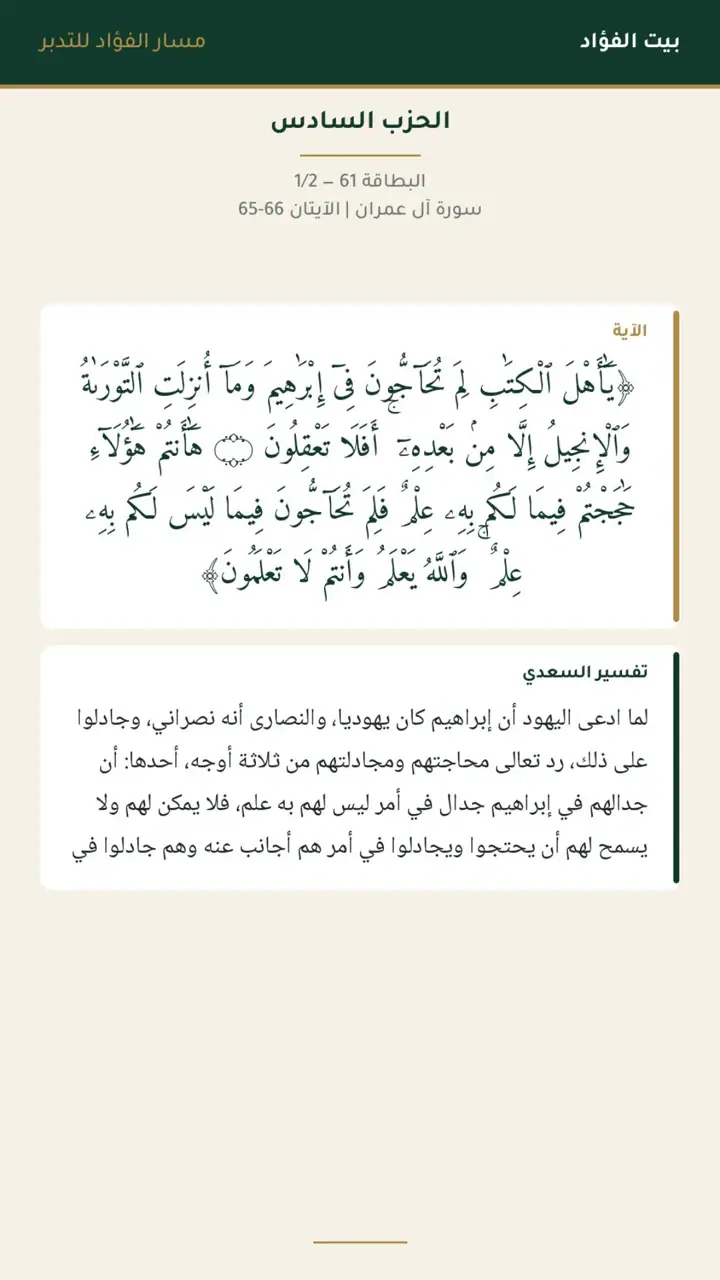 بيت الفؤاد
مسار الفؤاد للتدبر
الحزب السادس
البطاقة 61 – 1/2
سورة آل عمران | الآيتان 66-65
الآية
﴿يَٰٓأَهْلَ ٱلْكِتَٰبِ لِمَ تُحَآجُّونَ فِىٓ إِبْرَٰهِيمَ وَمَآ أُنزِلَتِ ٱلتَّوْرَىٰةُ
وَٱلْإِنجِيلُ إِلَّا مِنۢ بَعْدِهِۦٓ ۚ أَفَلَا تَعْقِلُونَ ۝ هَٰٓأَنتُمْ هَٰٓؤُلَآءِ
حَٰجَجْتُمْ فِيمَا لَكُم بِهِۦ عِلْمٌ فَلِمَ تُحَآجُّونَ فِيمَا لَيْسَ لَكُم بِهِۦ
عِلْمٌ ۚ وَٱللَّهُ يَعْلَمُ وَأَنتُمْ لَا تَعْلَمُونَ﴾
تفسير السعدي
لما ادعى اليهود أن إبراهيم كان يهوديا، والنصارى أنه نصراني، وجادلوا
على ذلك، رد تعالى محاجتهم ومجادلتهم من ثلاثة أوجه، أحدها: أن
جدالهم في إبراهيم جدال في أمر ليس لهم به علم، فلا يمكن لهم ولا
يسمح لهم أن يحتجوا ويجادلوا في أمر هم أجانب عنه وهم جادلوا في